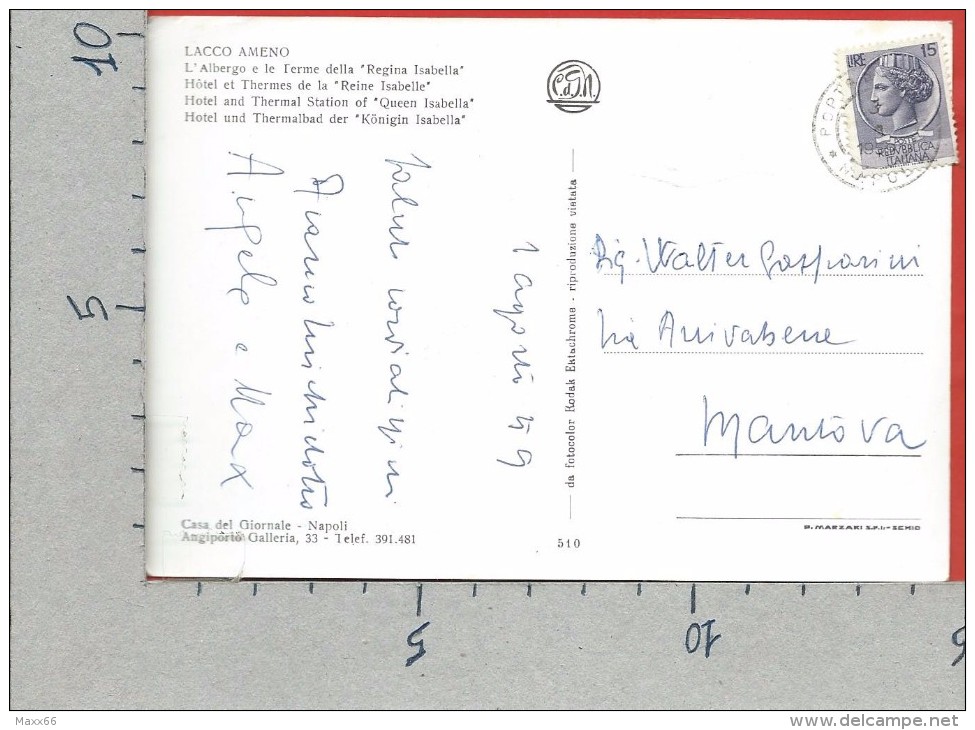 LACCO AMENO
L'Albergo e le Terme della "Regina Isabella"
Hôtel et Thermes de la "Reine Isabelle"
Hotel and Thermal Station of "Queen Isabella"
Hotel und Thermalbad der "Königin Isabella"
C.d.G.N.
LIRE 15
POSTE
REPVBBLICA
ITALIANA
PORTO
* NAPOLI
1 agosto 59
Saluti cordialissimi
Angela e Max
Sig. Walter Gasparini
Via Arrivabene
Mantova
da fotocolor Kodak Ektachrome - riproduzione vietata
Casa del Giornale - Napoli
Angiporto Galleria, 33 - Telef. 391.481
510
P. MARZARI S.R.L.-SCHIO
10
5
5
10
Maxx66
delcampe.net